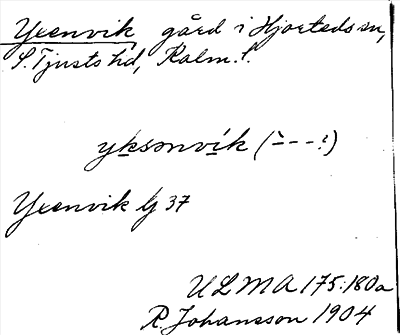 Yxenvik gård i Hjorteds sn,
S. Tjusts hd, Kalm. l.
yksənvík (`---́)
Yxenvik Gj 37
ULMA 175:180a
R. Johansson 1904